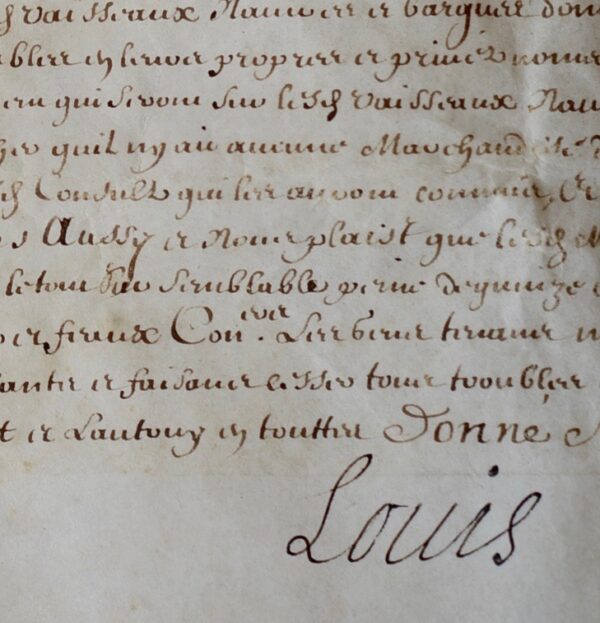 vaisseaux Navires et barques dont
en leurs propres et privéz noms
qui seront sur lesd vaisseaux Nav
quil ny ait aucune Marchandise d
Consulz qui les auront commis, Et
Aussy et Nous plaist que lesd M
le tout sur semblable peine de quinze
et fraux Coners. Les biens tenans
et faisans cesser tous troubles
t et Lautony en touttes Donné
Louis